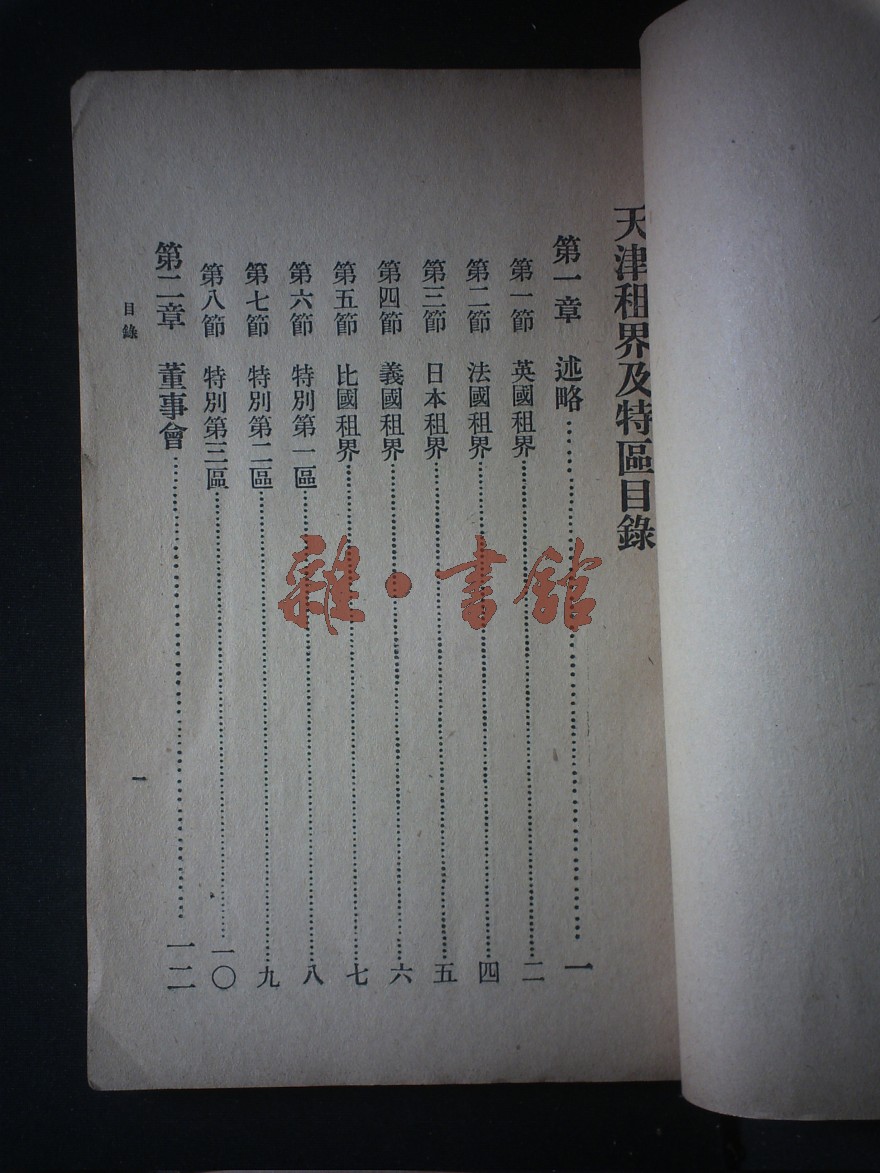 天津租界及特區目錄
第一章　述略……一
第一節　英國租界……二
第二節　法國租界……四
第三節　日本租界……五
第四節　義國租界……六
第五節　比國租界……七
第六節　特別第一區……八
第七節　特別第二區……九
第八節　特別第三區……一〇
第二章　董事會……一二
目錄
一
雜·書館